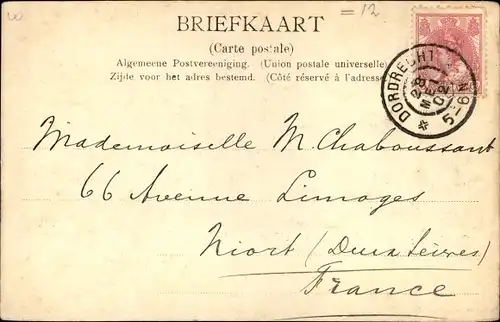 = 12
BRIEFKAART
(Carte postale)
Algemeene Postvereeniging. (Union postale universelle)
Zijde voor het adres bestemd. (Côté réservé à l'adresse
DORDRECHT
28 MEI 02
5-6N
Mademoiselle M. Chaboussant
66 Avenue Limoges
Niort (Deux Sèvres)
France